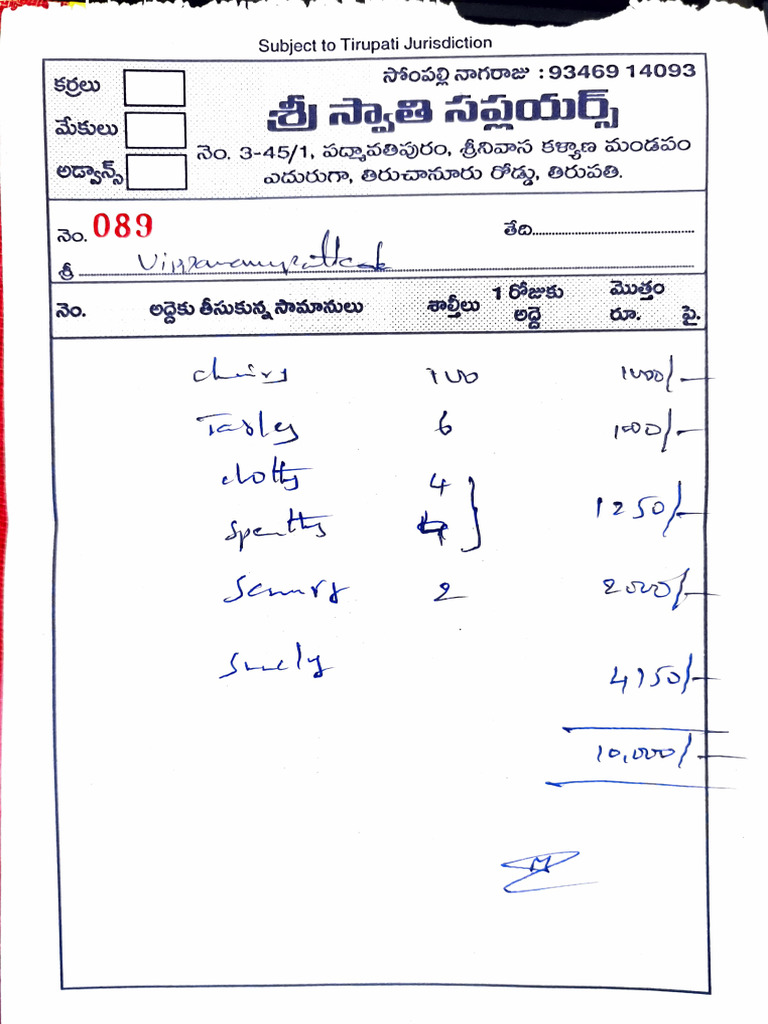 Subject to Tirupati Jurisdiction
కర్రలు
మేకులు
అడ్వాన్స్
సోంపల్లి నాగరాజు : 93469 14093
శ్రీ స్వాతి సప్లయర్స్
నెం. 3-45/1, పద్మావతిపురం, శ్రీనివాస కళ్యాణ మండపం
ఎదురుగా, తిరుచానూరు రోడ్డు, తిరుపతి.
నెం. 089 తేది
శ్రీ
నెం. అద్దెకు తీసుకున్న సామానులు శాల్తీలు 1 రోజుకు అద్దె మొత్తం రూ. పై.
chairs 100 1000/-
Tables 6 1000/-
4
4 1250/-
2 2000/-
4750/-
10,000/-